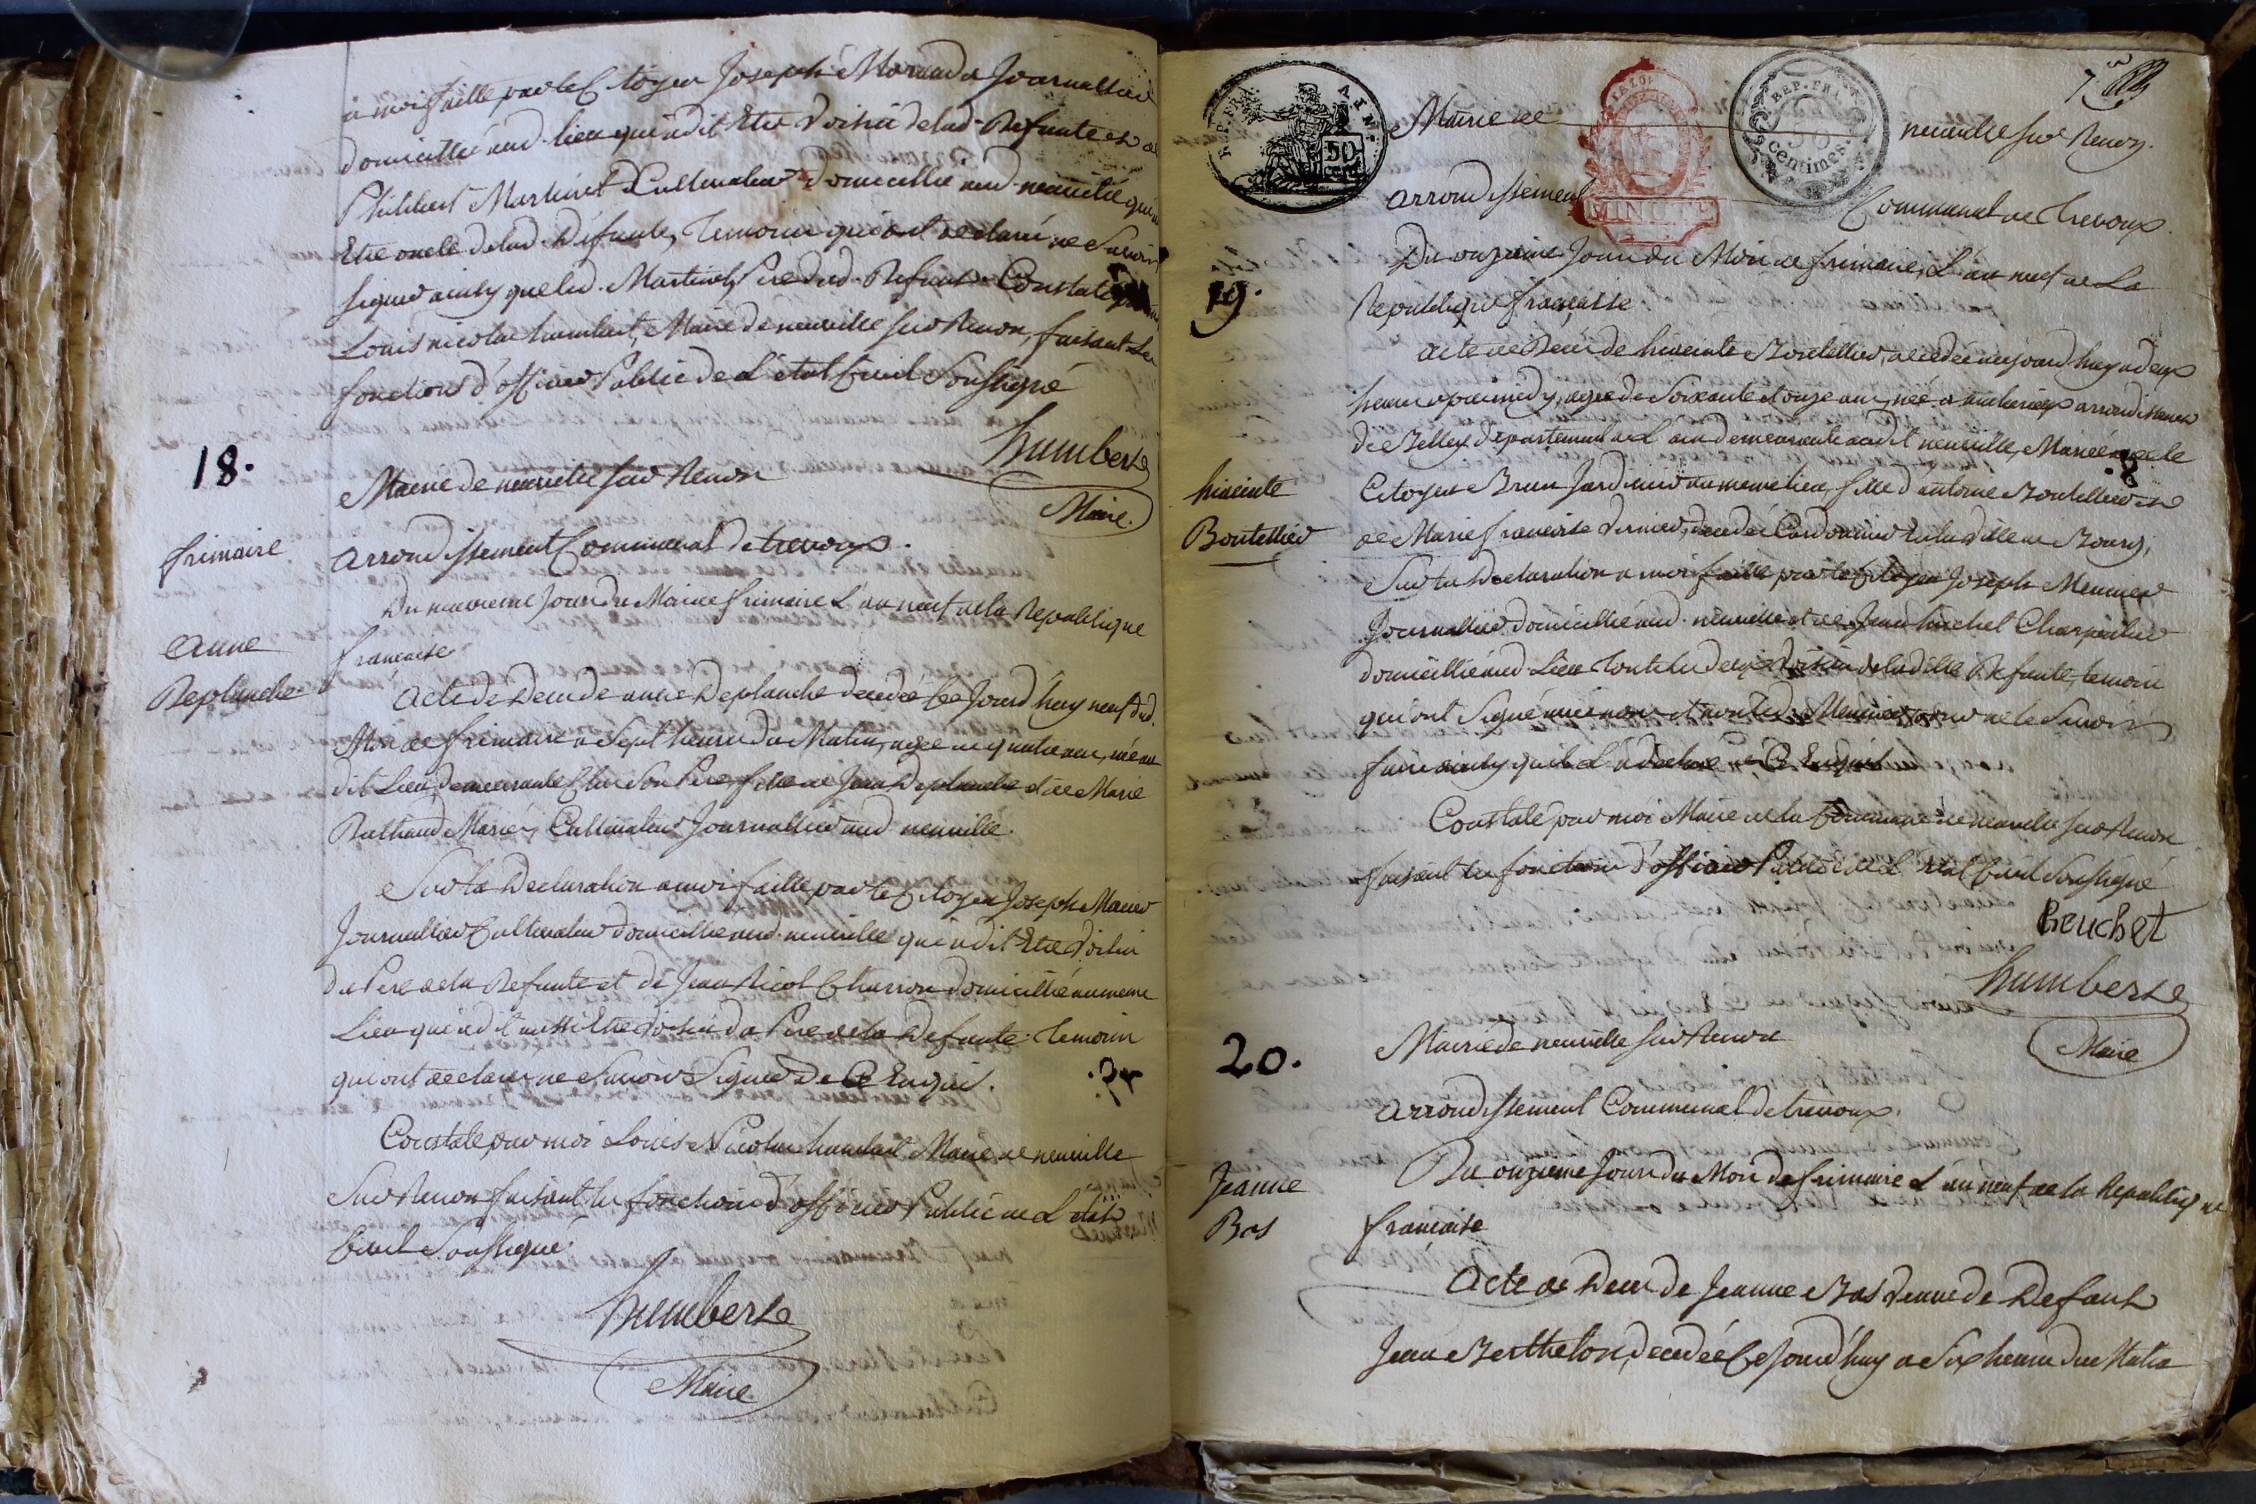 a moi faitte par le Citoyen Joseph Morand Journallier
domicillié aud. lieu qui a dit Etre Voisin de lad. Defunte et de
Philibert Martinet Cultivateur domicillié aud. neuville qui
Etre oncle de lad. Defunte, Temoins qui ont declaré ne Savoir
Signer ainsy que led. Martinet, Pere dud. Defunt. Constaté
Louis nicolas humbert, Maire de neuville Sur Renon, faisant Les
fonctions d'officier Public de L'etat Civil Soussigné
humbert
Maire.
18.
Mairie de neuville Sur Renon
frimaire
arrondissement Communal de trevoux.
Du neuvieme Jour du Mois de frimaire L'an neuf de la Republique
francaise
Anne
Deplanche
Acte de Deces de anne Deplanche decedée Ce Jourd'huy neuf dud.
Mois de frimaire a Sept heures du Matin, agée de quatre ans, née au
dit Lieu, demeurante Chez Son Pere, fille de Jean Deplanche et de Marie
Mariés, Cultivateur Journallier aud neuville.
Sur la Declaration a moi faitte par le Citoyen Joseph
Journallier Cultivateur domicillié aud. neuville qui a dit Etre Voisin
du Pere de la Defunte et de Jean Nicol Charron domicillié au meme
Lieu qui a dit aussi Etre Voisin du Pere de la Defunte. Temoins
qui ont declaré ne Savoir Signer de Ce Enquis.
Constaté par moi Louis Nicolas humbert Maire de neuville
Sur Renon faisant les fonctions d'officier Public de L'état
Civil Soussigné.
humbert
Maire
REP. FRA.
50
REP. FRA.
50
centimes.
MINUTE
7
Mairie de neuville Sur Renon.
arrondissement Communal de Trevoux.
19.
Du onzieme Jour du Mois de frimaire, L'an neuf de La
Republique française
acte de Deces de hiacinte Boutellier, decedée aujourd'huy a deux
heures apres midy, agée de Soixante et onze ans, née a arrondissement
de Belley departement de L'ain demeurante audit neuville, Mariée avec le
hiacinte
Boutellier
Citoyen Brun Jardinier au meme lieu, fille d'antoine Boutellier et
de Marie francoise decedés Cordonnier en la Ville de Bourg,
Sur la Declaration a moi faitte par le Citoyen Joseph Meunier
Journallier domicillié aud. neuville et de Jean Michel Charpentier
domicillié aud. Lieu Tous les deux Voisins de la ditte Defunte, temoins
qui ont Signé avec moi et non led. Meunier pour ne le Savoir
faire ainsy qu'il L'a declaré de Ce Enquis
Constaté par moi Maire de la Commune de neuville Sur Renon
faisant les fonctions d'officier Public de L'état Civil Soussigné
humbert
Maire
20.
Mairie de neuville Sur Renon
arrondissement Communal de trevoux.
Jeanne
Bas
Du onzieme Jour du Mois de frimaire L'an neuf de la Republique
francaise
Acte de Deces de Jeanne Bas Veuve de Defunt
Jean Berthelon, decedée Ce Jourd'huy a Six heures du Matin